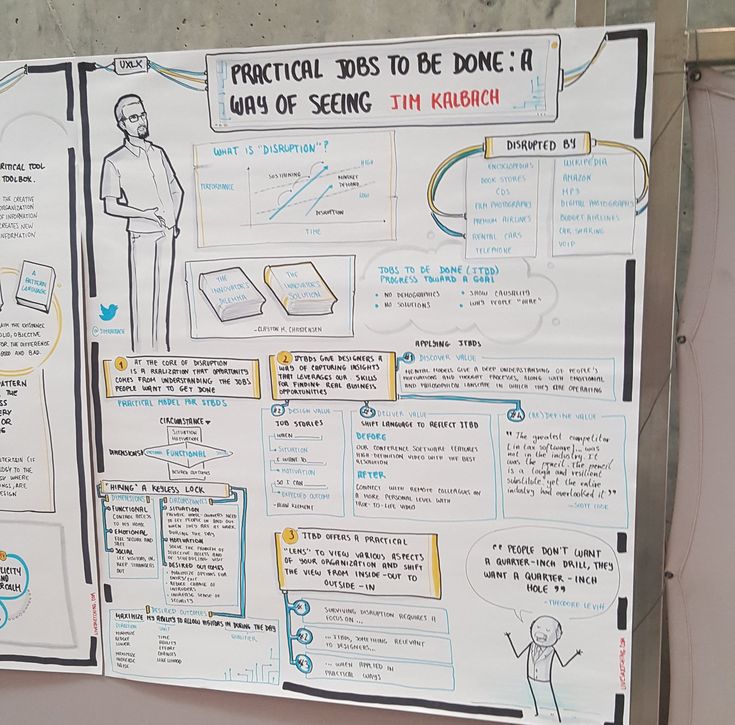 UXLX
PRACTICAL JOBS TO BE DONE: A
WAY OF SEEING JIM KALBACH
WHAT IS "DISRUPTION"?
PERFORMANCE
SUSTAINING
HIGH
MARKET
DEMAND
LOW
DISRUPTION
TIME
DISRUPTED BY
ENCYCLOPEDIAS
BOOK STORES
CDS
FILM PHOTOGRAPHS
PREMIUM AIRLINES
RENTAL CARS
TELEPHONE
WIKIPEDIA
AMAZON
MP3
DIGITAL PHOTOGRAPHS
BUDGET AIRLINES
CAR-SHARING
VOIP
THE
INNOVATOR'S
DILEMMA
THE
INNOVATOR'S
SOLUTION
CHRISTENSEN
JOBS TO BE DONE (JTBD)
PROGRESS TOWARD A GOAL
• NO DEMOGRAPHICS
• NO SOLUTIONS
• SHOW CAUSALITY
• WHY PEOPLE "HIRE"
@JIMKALBACH
1
AT THE CORE OF DISRUPTION
IS A REALIZATION THAT OPPORTUNITY
COMES FROM UNDERSTANDING THE JOBS
PEOPLE WANT TO GET DONE
PRACTICAL MODEL FOR JTBDS
CIRCUMSTANCE
SITUATION
MOTIVATION
DIMENSIONS
FUNCTIONAL
DESIRED OUTCOMES
"HIRING" A KEYLESS LOCK
DIMENSIONS
FUNCTIONAL
CONTROL ACCESS
TO MY HOME
EMOTIONAL
FEEL SECURE AND
SAFE
SOCIAL
LET VISITORS IN,
KEEP STRANGERS
OUT
CIRCUMSTANCES
SITUATION
PRIVATE HOME-OWNERS NEED
TO LET PEOPLE IN AND OUT
WHEN THEY ARE AT WORK
DURING THE DAY
MOTIVATION
SOLVE THE PROBLEM OF
EFFECTIVE ACCESS AND
OF SCHEDULING VISIT
DESIRED OUTCOMES
• MAXIMIZE OPTIONS FOR
ENTRY/EXIT
• REDUCE CHANCE OF
INTRUDERS
• INCREASE SENSE OF
SECURITY
DESIRED OUTCOMES
MAXIMIZE MY ABILITY TO ALLOW VISITORS IN DURING THE DAY
DIRECTION
MINIMIZE
REDUCE
LOWER
MAXIMIZE
INCREASE
RAISE
UNIT
TIME
ABILITY
EFFORT
CHANCES
LIKELIHOOD
QUALIFIER
2
JTBDS GIVE DESIGNERS A
WAY OF CAPTURING INSIGHTS
THAT LEVERAGES OUR SKILLS
FOR FINDING REAL BUSINESS
OPPORTUNITIES
APPLYING JTBDS
#1 DISCOVER VALUE
MENTAL MODELS GIVE A DEEP UNDERSTANDING OF PEOPLE'S
MOTIVATIONS AND THOUGHT PROCESSES, ALONG WITH EMOTIONAL
AND PHILOSOPHICAL LANDSCAPE IN WHICH THEY ARE OPERATING
#2 DESIGN VALUE
JOB STORIES
WHEN
SITUATION
I WANT TO
MOTIVATION
SO I CAN
EXPECTED OUTCOME
- ALAN KLEMENT
#3 DELIVER VALUE
SHIFT LANGUAGE TO REFLECT JTBD
BEFORE
OUR CONFERENCE SOFTWARE FEATURES
HIGH-DEFINITION VIDEO WITH THE BEST
RESOLUTION
AFTER
CONNECT WITH REMOTE COLLEAGUES ON
A MORE PERSONAL LEVEL WITH
TRUE-TO-LIFE VIDEO
#4 (RE) DEFINE VALUE
"The greatest competitor
[in tax software]... was
not in the industry. It
was the pencil. The pencil
is a tough and resilient
substitute. Yet the entire
industry had overlooked it"
- SCOTT COOK
3
JTBD OFFERS A PRACTICAL
"LENS" TO VIEW VARIOUS ASPECTS
OF YOUR ORGANIZATION AND SHIFT
THE VIEW FROM INSIDE-OUT TO
OUTSIDE-IN
#1
SURVIVING DISRUPTION REQUIRES A
FOCUS ON ...
#2
... JTBDS, SOMETHING RELEVANT
TO DESIGNERS...
#3
... WHEN APPLIED IN
PRACTICAL WAYS
"PEOPLE DON'T WANT
A QUARTER-INCH DRILL, THEY
WANT A QUARTER-INCH
HOLE"
- THEODORE LEVITT
LIVESKETCHING.COM
LIVESKETCHING.COM
A
PATTERN
LANGUAGE